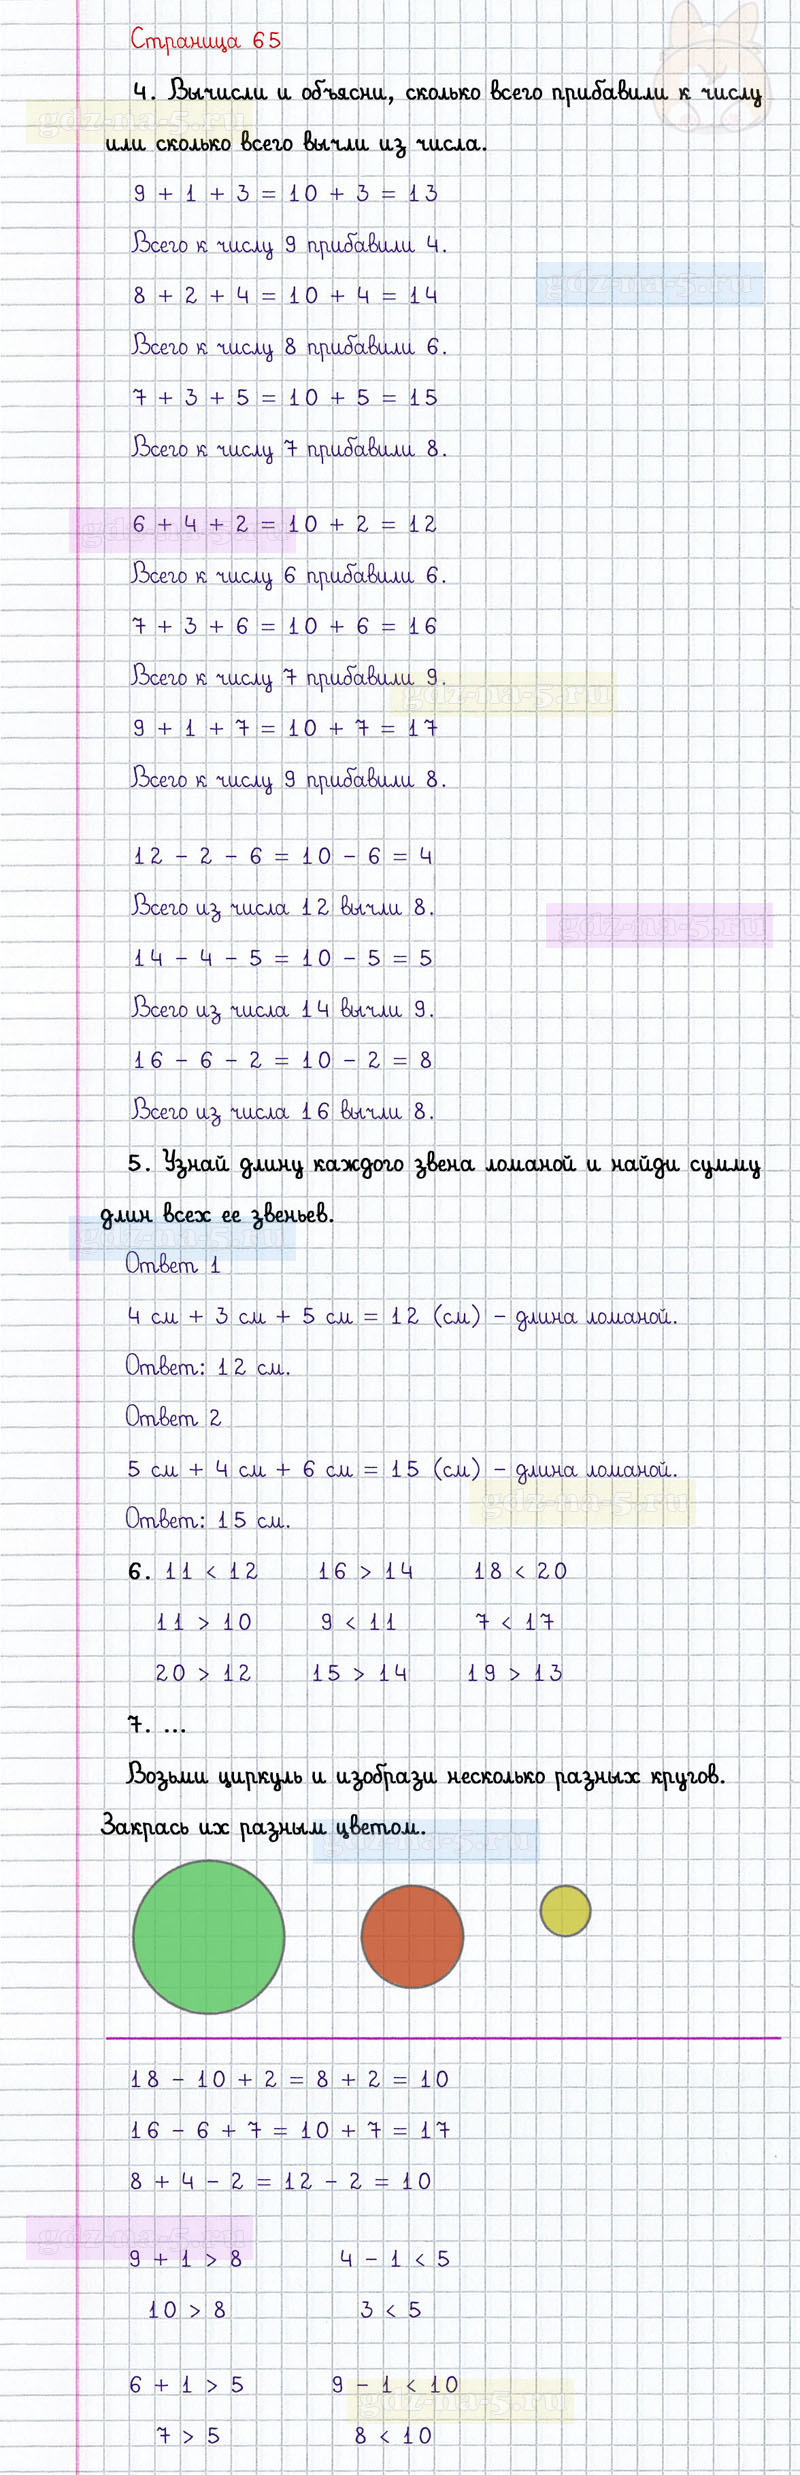 Страница 65
4. Вычисли и объясни, сколько всего прибавили к числу
gdz-na-5.ru
или сколько всего вычли из числа.
9 + 1 + 3 = 10 + 3 = 13
Всего к числу 9 прибавили 4.
gdz-na-5.ru
8 + 2 + 4 = 10 + 4 = 14
Всего к числу 8 прибавили 6.
7 + 3 + 5 = 10 + 5 = 15
Всего к числу 7 прибавили 8.
6 + 4 + 2 = 10 + 2 = 12
gdz-na-5.ru
Всего к числу 6 прибавили 6.
7 + 3 + 6 = 10 + 6 = 16
Всего к числу 7 прибавили 9.
gdz-na-5.ru
9 + 1 + 7 = 10 + 7 = 17
Всего к числу 9 прибавили 8.
12 - 2 - 6 = 10 - 6 = 4
Всего из числа 12 вычли 8.
gdz-na-5.ru
14 - 4 - 5 = 10 - 5 = 5
Всего из числа 14 вычли 9.
16 - 6 - 2 = 10 - 2 = 8
Всего из числа 16 вычли 8.
5. Узнай длину каждого звена ломаной и найди сумму
длин всех ее звеньев.
gdz-na-5.ru
Ответ 1
4 см + 3 см + 5 см = 12 (см) - длина ломаной.
Ответ: 12 см.
Ответ 2
5 см + 4 см + 6 см = 15 (см) - длина ломаной.
gdz-na-5.ru
Ответ: 15 см.
6. 11 < 12 16 > 14 18 < 20
11 > 10 9 < 11 7 < 17
20 > 12 15 > 14 19 > 13
7. ...
Возьми циркуль и изобрази несколько разных кругов.
Закрась их разным цветом.
gdz-na-5.ru
18 - 10 + 2 = 8 + 2 = 10
16 - 6 + 7 = 10 + 7 = 17
8 + 4 - 2 = 12 - 2 = 10
gdz-na-5.ru
9 + 1 > 8 4 - 1 < 5
10 > 8 3 < 5
6 + 1 > 5 9 - 1 < 10
gdz-na-5.ru
7 > 5 8 < 10